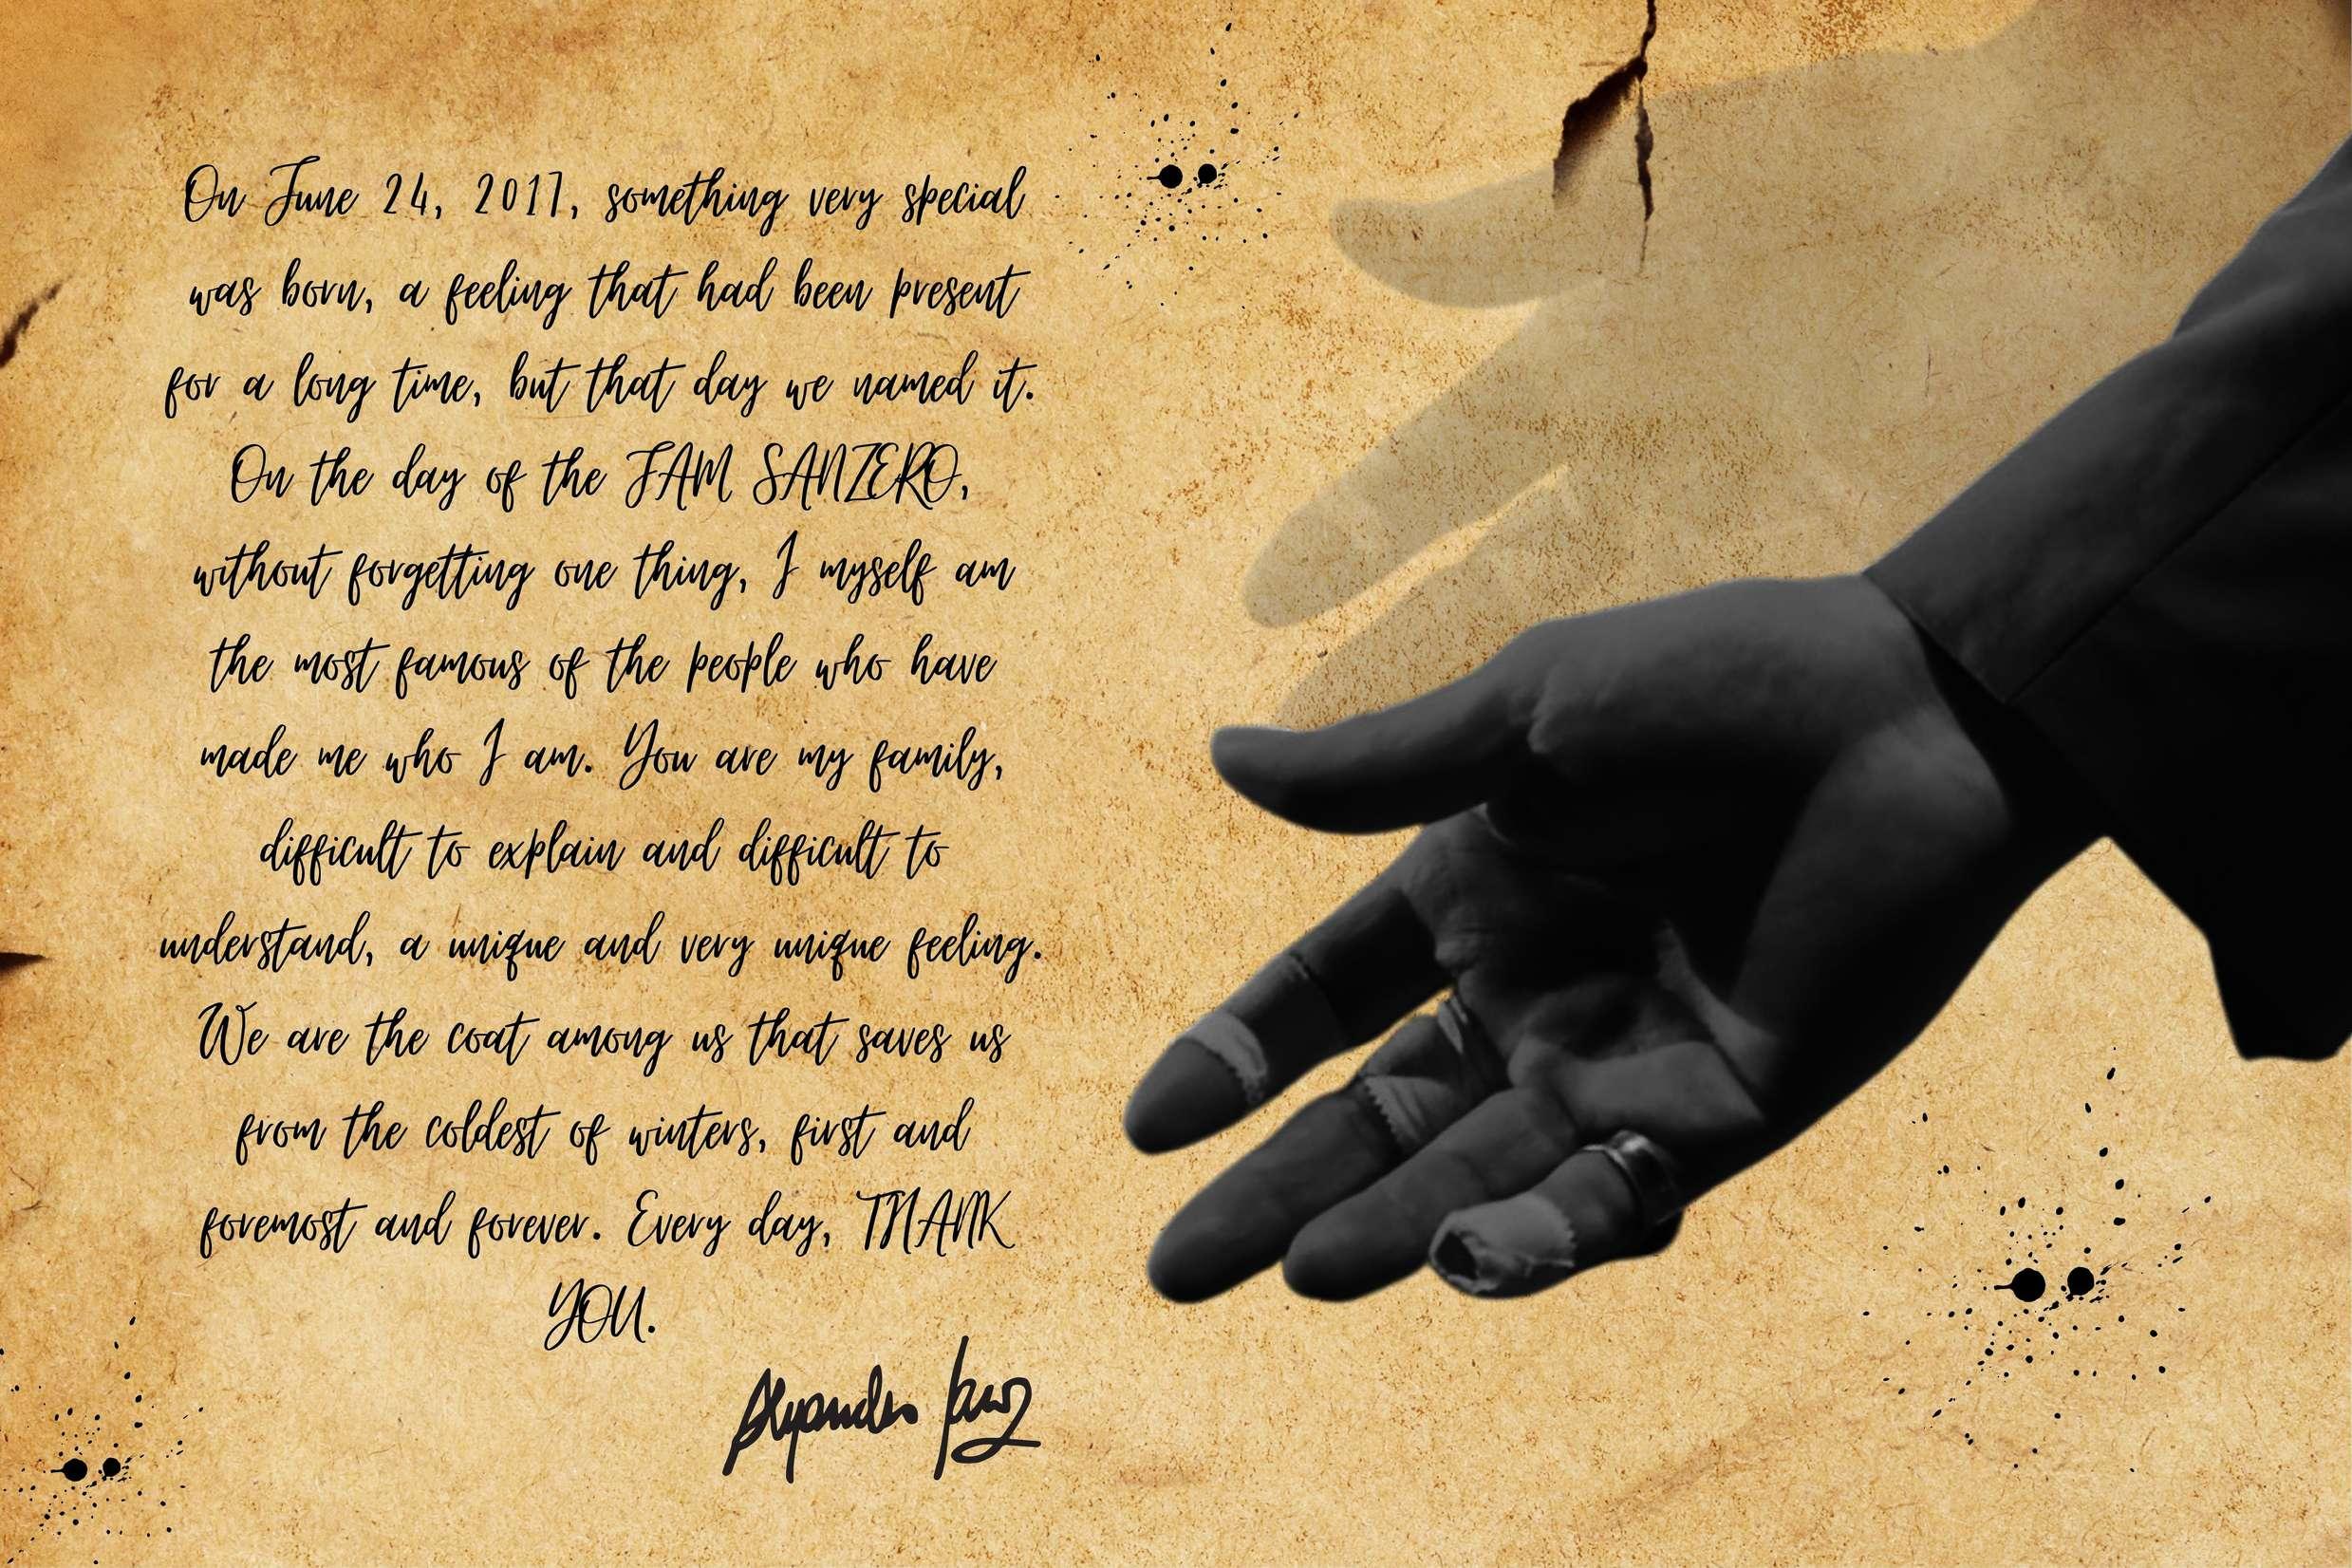 On June 24, 2017, something very special
was born, a feeling that had been present
for a long time, but that day we named it.
On the day of the FAM SANZERO,
without forgetting one thing, I myself am
the most famous of the people who have
made me who I am. You are my family,
difficult to explain and difficult to
understand, a unique and very unique feeling.
We are the coat among us that saves us
from the coldest of winters, first and
foremost and forever. Every day, THANK
YOU.